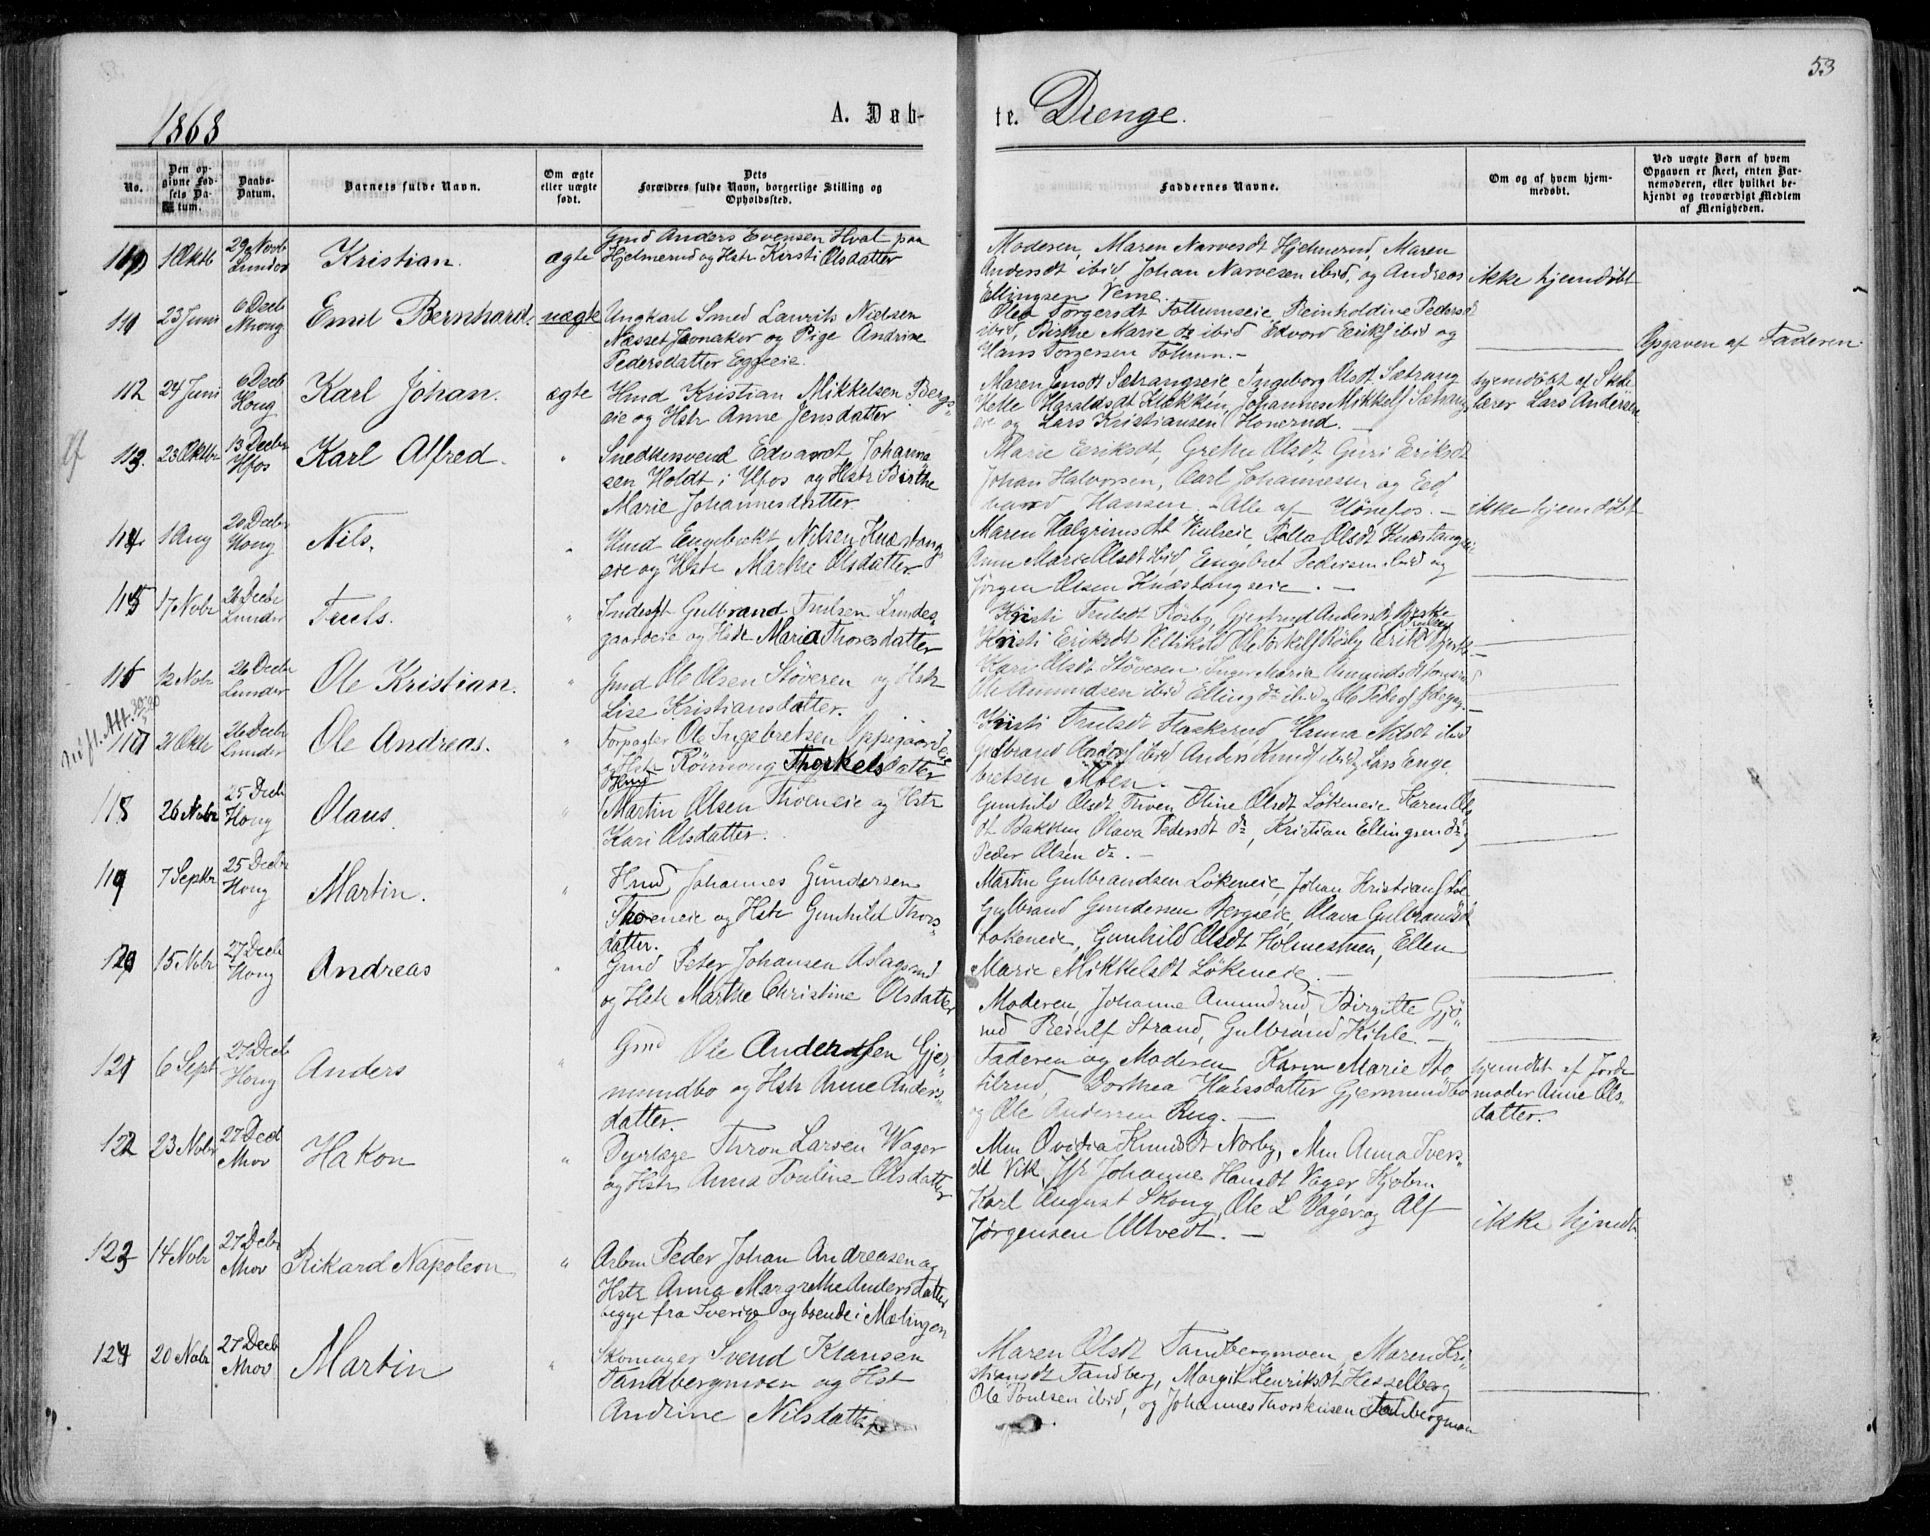 53
1868
A. Døb-
te. Drenge.
No.
Den op-
givne Fød-
sels Da-
tum.
Daabs-
Datum.
Barnets fulde Navn.
Om ægte
eller uægte
født.
Dets
Forældres fulde Navn, borgerlige Stilling og
Opholdssted.
Faddernes Navne.
Om og af hvem hjem-
medøbt.
Ved uægte Børn af hvem
Opgaven er skeet, enten Bar-
nemoderen, eller hvilket be-
kjendt og troværdigt Medlem
af Menigheden.
1 Oktb
29 Novb
Lunder
Kristian.
ægte
Gmd Anders Evensen Hval paa
Hjelmerud og Hstr Kirsti Olsdatter
Moderen, Maren Narvesdt Hjelmerud, Maren
Andersdt ibid, Johan Narvesen ibid, og Andreas
Ellingsen Veme.
ikke hjemdøbt
23 Juni
6 Decb
Nhong
Emil Bernhard.
uægte
Ungkarl Smed Laurits Nielsen
Næsset Jevnaker og Pige Andrine
Pedersdatter Eggeeie.
Olea Torgersdt Follumseie, Reinholdine Pedersd
ibid, Birthe Marie do ibid, Edvard Eriks ibid og
Hans Torgersen Follum.-
Opgaven af Faderen
112
24 Juni
6 Decb
Hong
Karl Johan.
ægte
Hmd Kristian Mikkelsen Bergs
eie og Hstr Anne Jensdatter
Maren Jensdt Sætrangseie, Ingeborg Olsdt Sætrang
Helle Haraldsdt Klækkin, Johannes Mikkels Sætrang
eie og Lars Kristiansen Honerud.
hjemdøbt af Skole
lærer Lars Andersen
113.
23 Oktbr
13 Decbr
Hfos
Karl Alfred.
"
Snedkersvend Edvardt Johanne
sen Holdt i Hfos og Hstr Birthe
Marie Johannesdatter
Marie Eriksdt, Grethe Olsdt, Guri Eriksdt
Johan Halvorsen, Carl Johannesen og Ed
vard Hansen - Alle af Hönefos. -
ikke hjemdøbt
114.
1 Aug
20 Decbr
Hong
Nils.
"
Hmd Engebrekt Nilsen Knæstang
eie og Hstr Marthe Olsdatter
Maren Halgrimsdt Viulseie, Pella Olsdt Knæstangseie
Anne Marie Olsdt ibid, Engebret Pedersen ibid og
Jørgen Olsen Knæstangseie. -
115
17 Nobr
26 Decbr
Lunder
Truls.
"
Inderst Gulbrand Trulsen Lundes-
gaardeie og Hstr Maria Thoresdatter
Kristi Trulsdt Rösby, Gjertrud Andersdt
Kristi Eriksdt
116
12 Nobr
26 Decbr
Lunder
Ole Kristian.
"
Gmd Ole Olsen Støveren og Hstr
Lise Kristiansdatter.
Kari Olsdt Støveren Inger Maria Amundsdt
Ole Amundsen ibid Elling do ibid og Ole Peders
117
21 Oktbr
26 Decbr
Lunder
Ole Andreas.
"
Forpagter Ole Ingebretsen Oppegaardeie
og Hstr Rönnoug Thorkelsdatter
Kristi Trulsdt Flaskerud, Hanna Nilsdt ibid
Gulbrand Anders ibid, Anders Knuds ibid, Lars Enge
bretsen Moen. -
118
26 Nobr
25 Decbr
Hong
Olaus.
"
Hmd
Martin Olsen Thoeneie og Hstr
Kari Olsdatter.
Gunhild Olsdt Thoen, Oline Olsdt Lökeneie Karen Ols
dt Bakken Olava Pedersdt do, Kristian Ellingsen do
Peder Olsen do. -
119
7 Septbr
25 Decbr
Hong
Martin.
"
Hmd, Johannes Gundersen
Thoeneie og Hstr Gunhild Thors
datter.
Martin Gulbrandsen Lökeneie, Johan Kristians do
Gulbrand Gundersen Bergseie, Olava Gulbrandsdt
Lokeneie, Gunhild Olsdt Holmestuen, Ellen
Marie Mikkelsdt Lökeneie. -
120
15 Nobr
27 Decbr
Hong
Andreas
"
Gmd Peter Johansen Aslagsrud
og Hstr Marthe Christine Olsdatter
Moderen, Johanne Amundrud, Birgitte Gjö
rud Beruls Strand, Gulbrand Kihle -
121
6 Sept
27 Decb
Hong
Anders
"
Gmd Ole Anderssen Gjer
mundbo og Hstr Anne Anders-
datter.
Faderen og Moderen Karen Marie
tilrud, Dorthea Hansdatter Gjermundbo
og Ole Andersen Rug. -
hjemdbt af Jorde
moder Anne Ols-
datter.
122
23 Nobr
27 Decb
Nhov
Hakon
"
Dyrlæge Thron Larsen Wager
og Hstr Anna Pouline Olsdatter
Mm Ovidia Knudsdt Norby, Mm Anna Ivers-
dt Vik, Jfr Johanne Hansdt Vager Kjøbm
Karl August Skong, Ole L Vager og Alf
Jørgensen Ultvedt. -
ikke hjemdt
123
14 Nobr
27 Decbr
Nhov
Rikard Napoleon
"
Arbm Peder Johan Andreasen og
Hstr Anna Margrethe Andersdatter
begge fra Sverige og boende i Mælingen
124
20 Nobr
27 Decb
Nhov
Martin
"
Skomager Svend Klausen
Tandbergmoen og Hst
Andrine Nilsdatter
Maren Olsdt Tandbergmoen, Maren Kri
stiansdt Tandberg, Margit Henriksdt Hesselberg
Ole Poulsen ibid, og Johannes Thorstensen Tandbergmoen